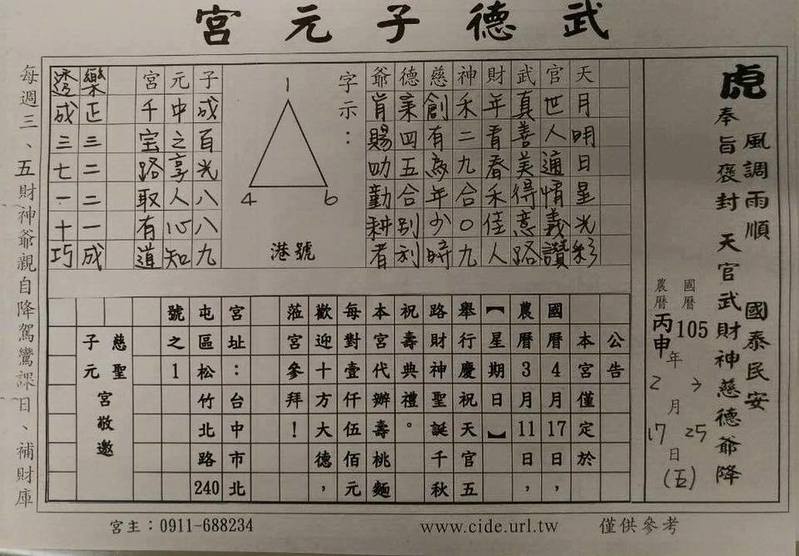 武德子元宮
虎
風調雨順 國泰民安
奉旨褒封 天官武財神慈德爺降
國曆105年3月25日(五)
農曆丙申年2月17日
天月明日星光彩
官世人通情義讚
武真善美得意路
財年青春禾佳人
神禾二九合〇九
慈創有為年少時
德業四五合別利
爺肯賜助勤耕者
字示：
1
4 6
港號
子成百光八八九
元中之享人心知
宮千宝路取有道
樂正三二二一成
透成三七一十巧
公告
本宮僅定於
國曆4月17日，
農曆3月11日，
【星期日】
舉行慶祝天官五
路財神聖誕千秋
祝壽典禮。
本宮代辦壽桃麵
每對壹仟伍佰元
歡迎十方大德，
蒞宮參拜！
宮址：台中市北
屯區松竹北路240
號之1
慈聖
子元宮敬邀
每週三、五財神爺親自降駕鸞課日、補財庫
宮主：0911-688234
www.cide.url.tw
僅供參考